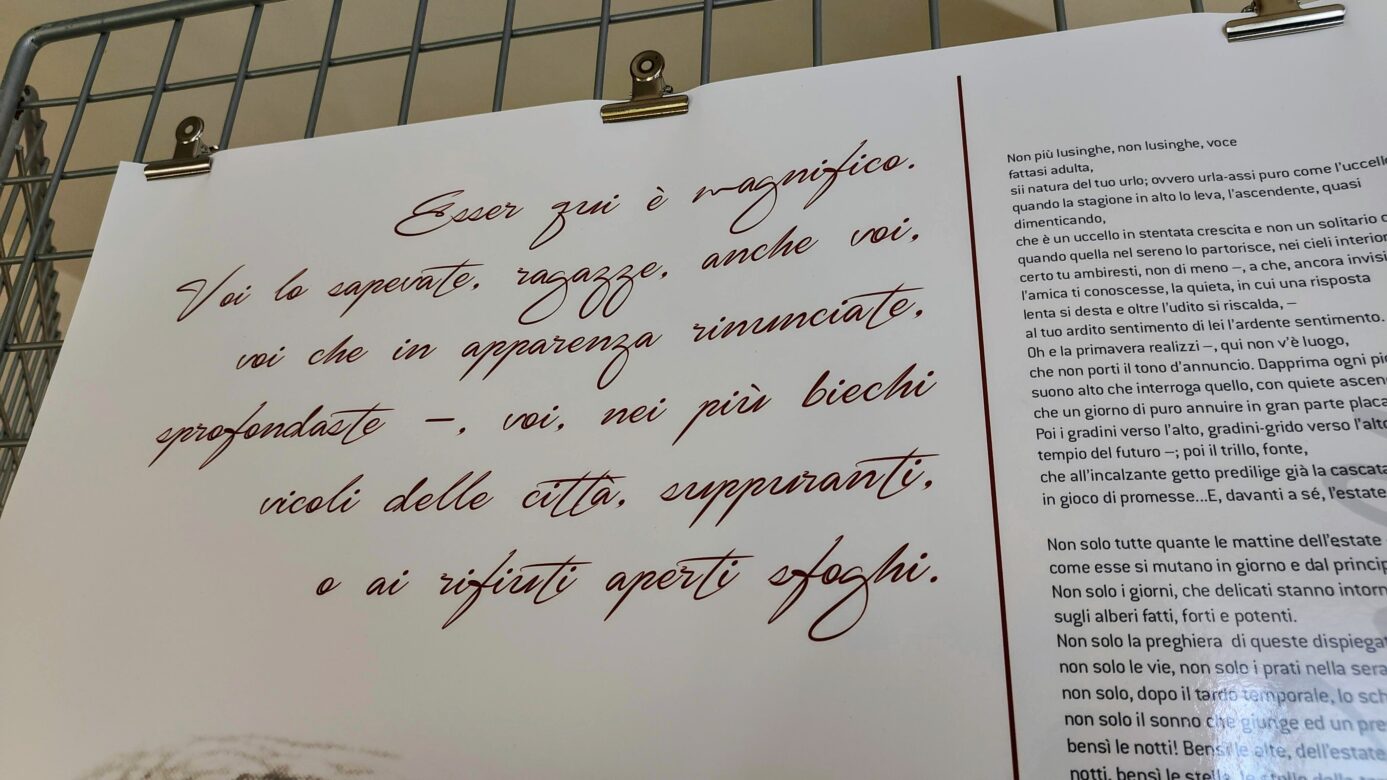 Esser qui è magnifico.
Voi lo sapevate, ragazze, anche voi,
voi che in apparenza rinunciate,
sprofondaste –, voi, nei più biechi
vicoli delle città, suppuranti,
o ai rifiuti aperti sfoghi.
Non più lusinghe, non lusinghe, voce
fattasi adulta,
sii natura del tuo urlo; ovvero urla-assi puro come l'uccello
quando la stagione in alto lo leva, l'ascendente, quasi
dimenticando,
che è un uccello in stentata crescita e non un solitario
quando quella nel sereno lo partorisce, nei cieli
certo tu ambiresti, non di meno –, a che, ancora
l'amica ti conoscesse, la quieta, in cui una risposta
lenta si desta e oltre l'udito si riscalda, –
al tuo ardito sentimento di lei l'ardente sentimento.
Oh e la primavera realizzi –, qui non v'è luogo,
che non porti il tono d'annuncio. Dapprima ogni
suono alto che interroga quello, con quiete
che un giorno di puro annuire in gran parte
Poi i gradini verso l'alto, gradini-grido verso l'alto
tempio del futuro –; poi il trillo, fonte,
che all'incalzante getto predilige già la cascata
in gioco di promesse...E, davanti a sé, l'estate
Non solo tutte quante le mattine dell'estate
come esse si mutano in giorno e dal
Non solo i giorni, che delicati stanno
sugli alberi fatti, forti e potenti.
Non solo la preghiera di queste
non solo le vie, non solo i prati nella
non solo, dopo il tardo temporale, lo
non solo il sonno che giunge ed un
bensì le notti! Bensì le alte, dell'estate
notti, bensì le